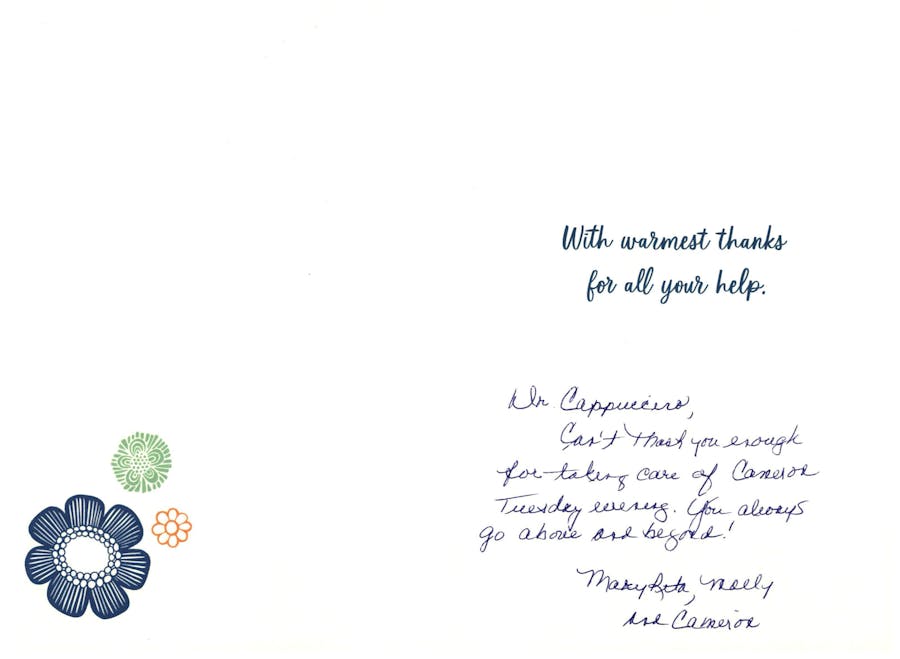 With warmest thanks
for all your help.
Dr. Cappuccino,
Can't thank you enough
for taking care of Cameron
Tuesday evening. You always
go above and beyond!
MaryRita, Molly
and Cameron